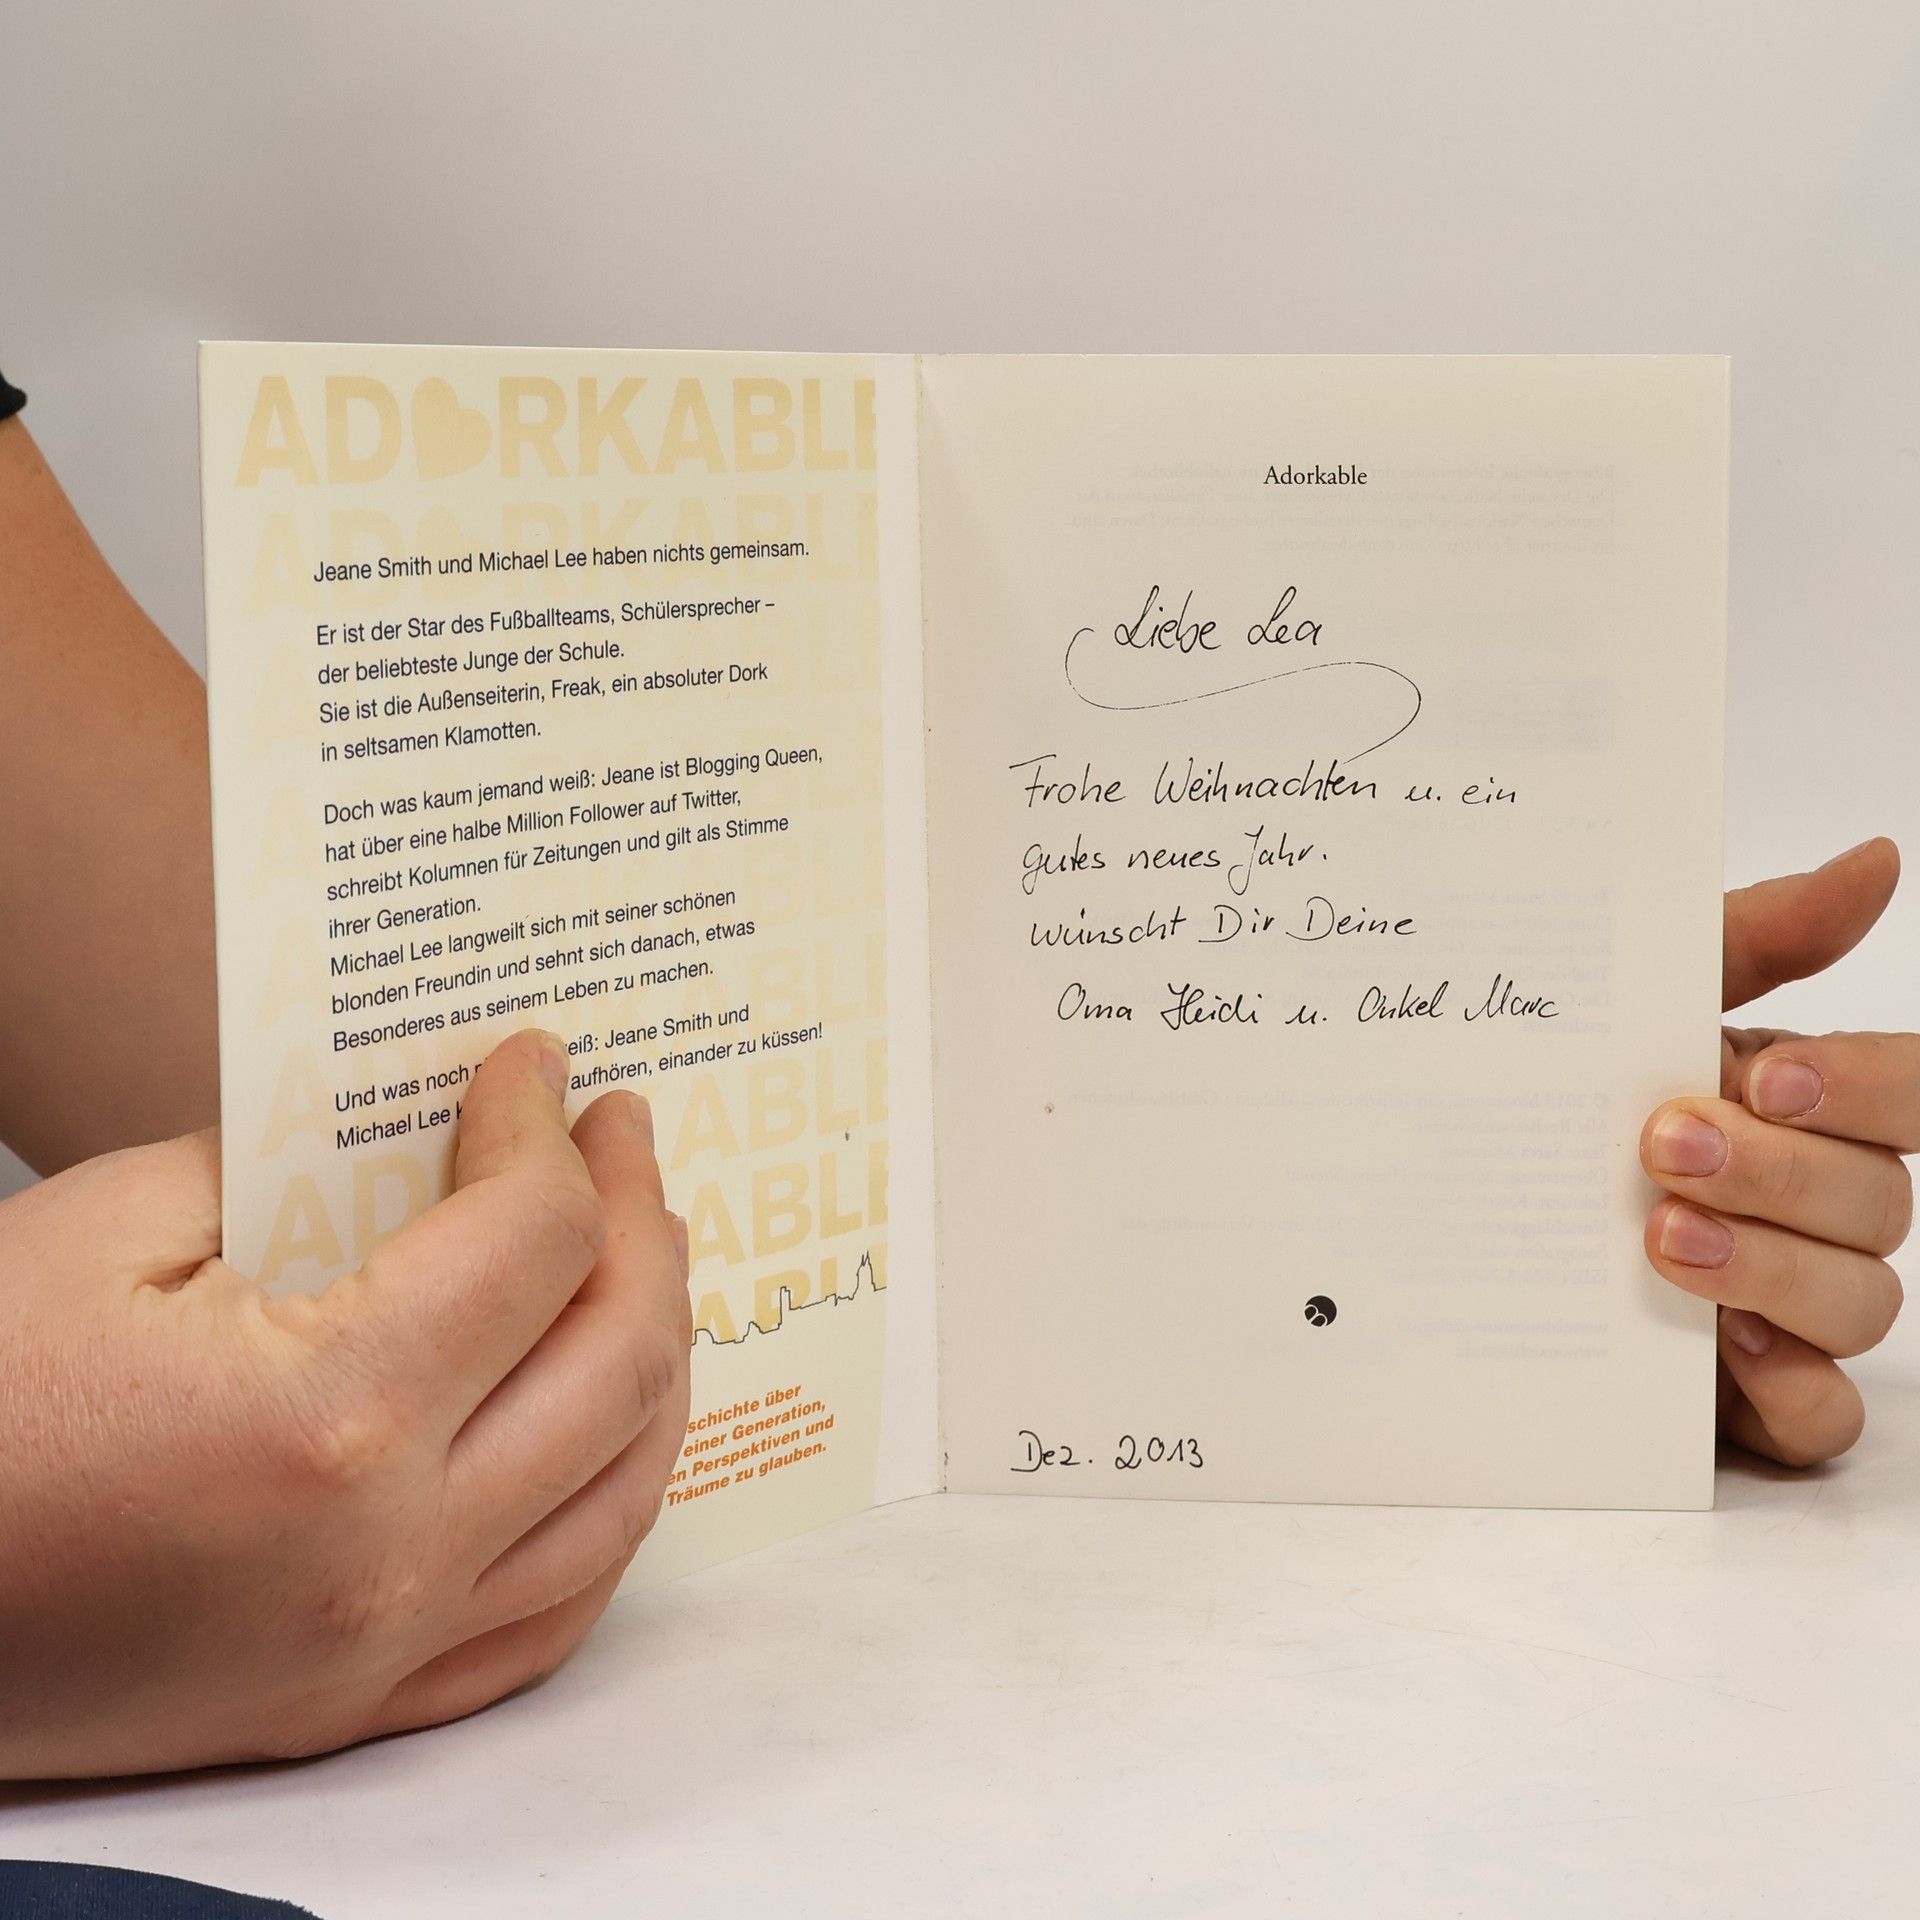 ADORKABLE
ADORKABLE
Jeane Smith und Michael Lee haben nichts gemeinsam.
Er ist der Star des Fußballteams, Schülersprecher –
der beliebteste Junge der Schule.
Sie ist die Außenseiterin, Freak, ein absoluter Dork
in seltsamen Klamotten.
Doch was kaum jemand weiß: Jeane ist Blogging Queen,
hat über eine halbe Million Follower auf Twitter,
schreibt Kolumnen für Zeitungen und gilt als Stimme
ihrer Generation.
Michael Lee langweilt sich mit seiner schönen
blonden Freundin und sehnt sich danach, etwas
Besonderes aus seinem Leben zu machen.
Und was noch eiß: Jeane Smith und
Michael Lee k aufhören, einander zu küssen!
KABLE
AD ABLE
ABLE
schichte über
einer Generation,
en Perspektiven und
Träume zu glauben.
Adorkable
Liebe Lea
Frohe Weihnachten u. ein
gutes neues Jahr.
wünscht Dir Deine
Oma Heidi u. Onkel Marc
Dez. 2013